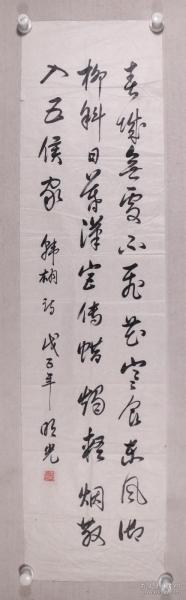 春城無處不飛花寒食東風御
柳斜日暮漢宮傳蜡燭輕烟散
入五侯家 韓翃詩 戊子年 明光